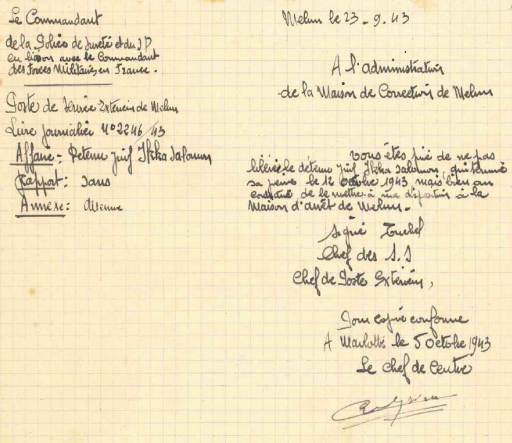 Le Commandant
de la Police de Sureté et du SD
en liaison avec le Commandant
des Forces Militaires en France.
Poste de Service Extérieur de Melun
Livre journalier N° 2246/43
Affaire:- Détenu Juif Itzko Salomon
Rapport: Sans
Annexe:
Melun le 23-9-43
A l'administration
de la Maison de Correction de Melun
Vous êtes prié de ne pas
libérer le détenu Juif Itzko Salomon, qui termine
sa peine le 12 Octobre 1943 mais bien au
contraire de le mettre à ma disposition à la
Maison d'arrêt de Melun.-
Signé
Chef des S.S
Chef de Poste Extérieur,
Pour copie conforme
A le 5 Octobre 1943
Le Chef de Centre